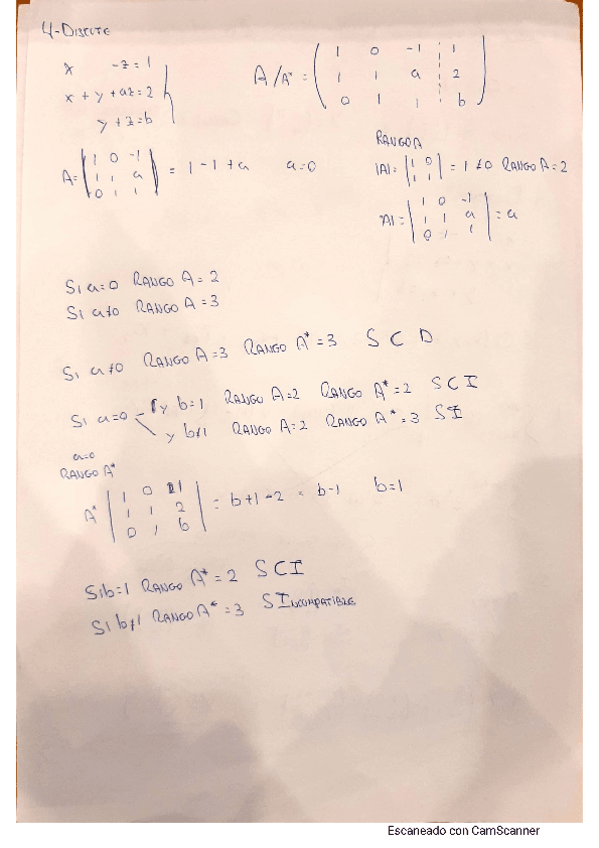 4-DISCUTE
x -z=1
x + y +az=2
y+z=b
A/A*= ( 1 0 -1 1
1 1 a 2
0 1 1 b )
RANGO A
A= | 1 0 -1
1 1 a
0 1 1 | = 1-1+a a=0
|A|= | 1 0
1 1 | = 1 ≠0 RANGO A=2
|A|= | 1 0 -1
1 1 a
0 1 1 | = a
Si a=0 RANGO A=2
Si a≠0 RANGO A=3
Si a≠0 RANGO A=3 RANGO A*=3 S C D
Si a=0 y b=1 RANGO A=2 RANGO A*=2 SCI
y b≠1 RANGO A=2 RANGO A*=3 SI
a=0
RANGO A*
A* | 1 0 1
1 1 2
0 1 b | = b+1-2 = b-1 b=1
Si b=1 RANGO A*=2 SCI
Si b≠1 RANGO A*=3 SINCOMPATIBLE
Escaneado con CamScanner